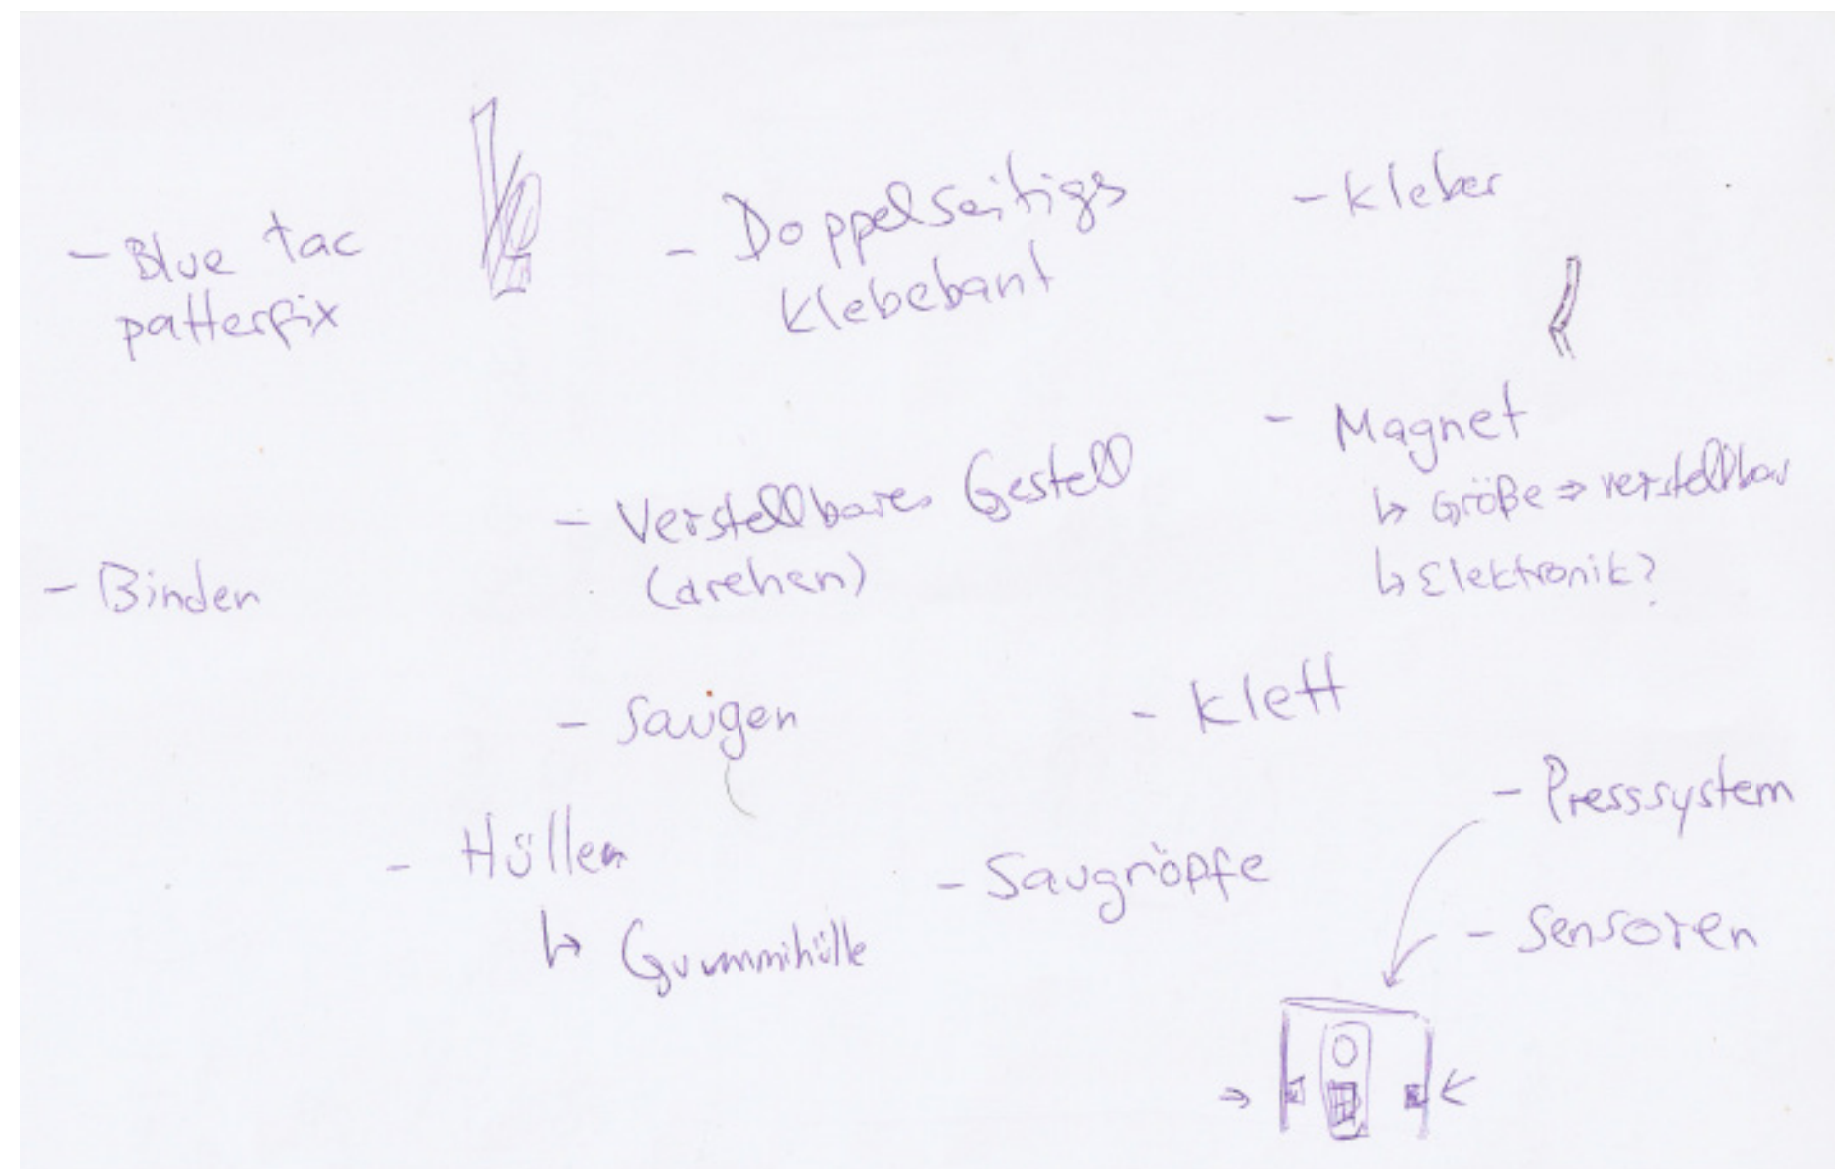 - Blue tac
patterfix
- Doppelseitigs
Klebebant
- Kleber
- Magnet
↳ Größe ⇒ verstellbar
↳ Elektronik?
- Verstellbares Gestell
(drehen)
- Binden
- Saugen
- Klett
- Presssystem
- Hüllen
↳ Gummihülle
- Saugnöpfe
- Sensoren